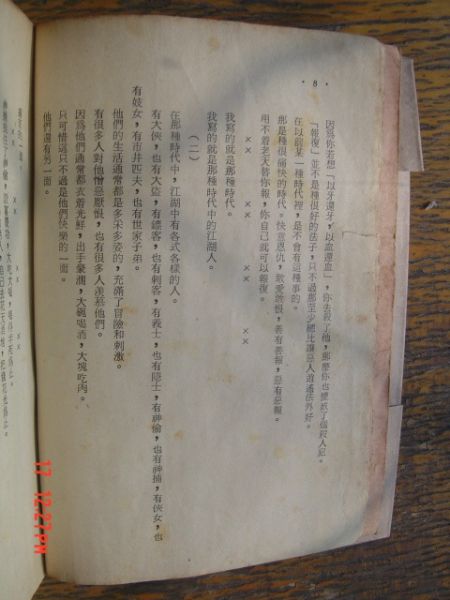 ·8·
因爲你若想「以牙還牙，以血還血」，你去殺了他，那麼你也變成了個殺人犯。
「報復」並不是種很好的法子，只不過那至少總比讓惡人逍遙法外好。
在以前某一種時代裡，是不會有這種事的。
那是種很痛快的時代。快意恩仇，敢愛敢恨，善有善報，惡有惡報。
用不着老天替你報，你自己就可以報復。
×× ×× ××
我寫的就是那種時代。
我寫的就是那種時代中的江湖人。
（二）
在那種時代中，江湖中有各式各樣的人。
有大俠，也有大盜，有鏢客，也有刺客，有義士，也有隱士，有神偷，也有神捕，有俠女，也
有妓女，有市井匹夫，也有世家子弟。
他們的生活通常都是多采多姿的，充滿了冒險和刺激。
有很多人對他憎惡厭恨，也有很多人羨慕他們。
因爲他們通常都衣着光鮮，出手豪濶，大碗喝酒，大塊吃肉。
只可惜這只不過是他們快樂的一面。
他們還有另一面。
×× ××